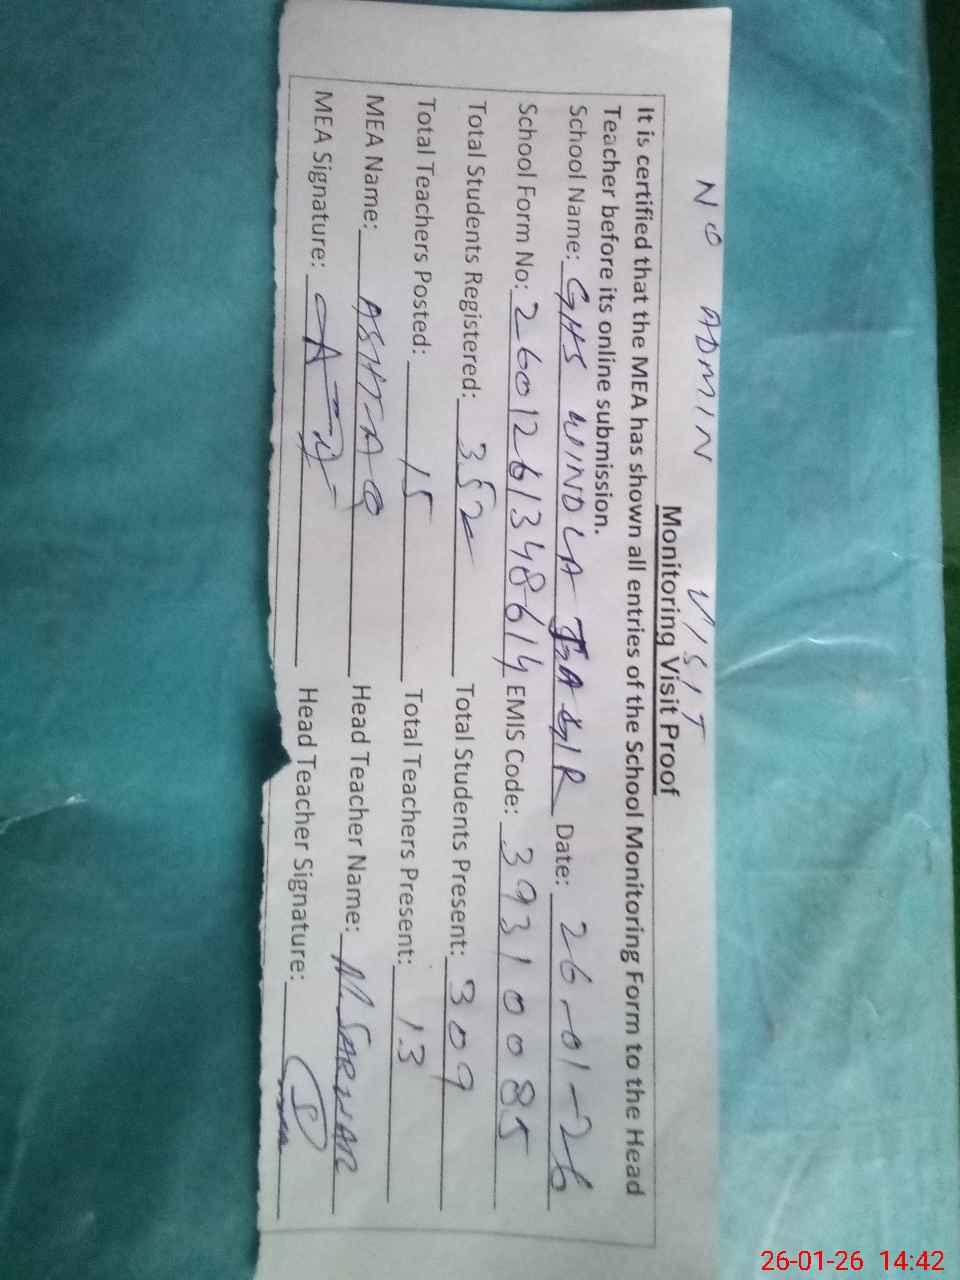 NO ADMIN VISIT
Monitoring Visit Proof
It is certified that the MEA has shown all entries of the School Monitoring Form to the Head
Teacher before its online submission.
School Name: GHS WINDLA JAGIR Date: 26-01-26
School Form No: 2601261348614 EMIS Code: 39310085
Total Students Registered: 352 Total Students Present: 309
Total Teachers Posted: 15 Total Teachers Present: 13
MEA Name: ASHFAQ Head Teacher Name: M. SARWAR
MEA Signature: Head Teacher Signature:
26-01-26 14:42